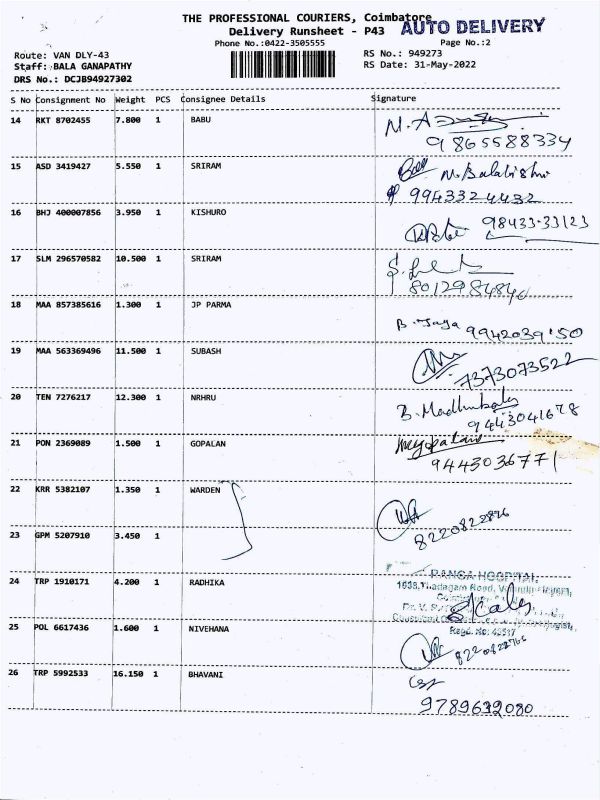 THE PROFESSIONAL COURIERS, Coimbatore
AUTO DELIVERY
Delivery Runsheet - P43
Phone No.:0422-3505555
Page No.:2
Route: VAN DLY-43
RS No.: 949273
Staff: BALA GANAPATHY
RS Date: 31-May-2022
DRS No.: DCJB94927302
S No Consignment No Weight PCS Consignee Details Signature
14 RKT 8702455 7.800 1 BABU
9865588334
15 ASD 3419427 5.550 1 SRIRAM
9943324432
16 BHJ 400007856 3.950 1 KISHURO
98433-33123
17 SLM 296570582 10.500 1 SRIRAM
8012984840
18 MAA 857385616 1.300 1 JP PARMA
B. Jaya
19 MAA 563369496 11.500 1 SUBASH
7373073522
20 TEN 7276217 12.300 1 NRHRU
9443041678
21 PON 2369089 1.500 1 GOPALAN
9443036771
22 KRR 5382107 1.350 1 WARDEN
23 GPM 5207910 3.450 1
24 TRP 1910171 4.200 1 RADHIKA
RANGA HOSPITAL,
25 POL 6617436 1.600 1 NIVEHANA
26 TRP 5992533 16.150 1 BHAVANI
9789639080